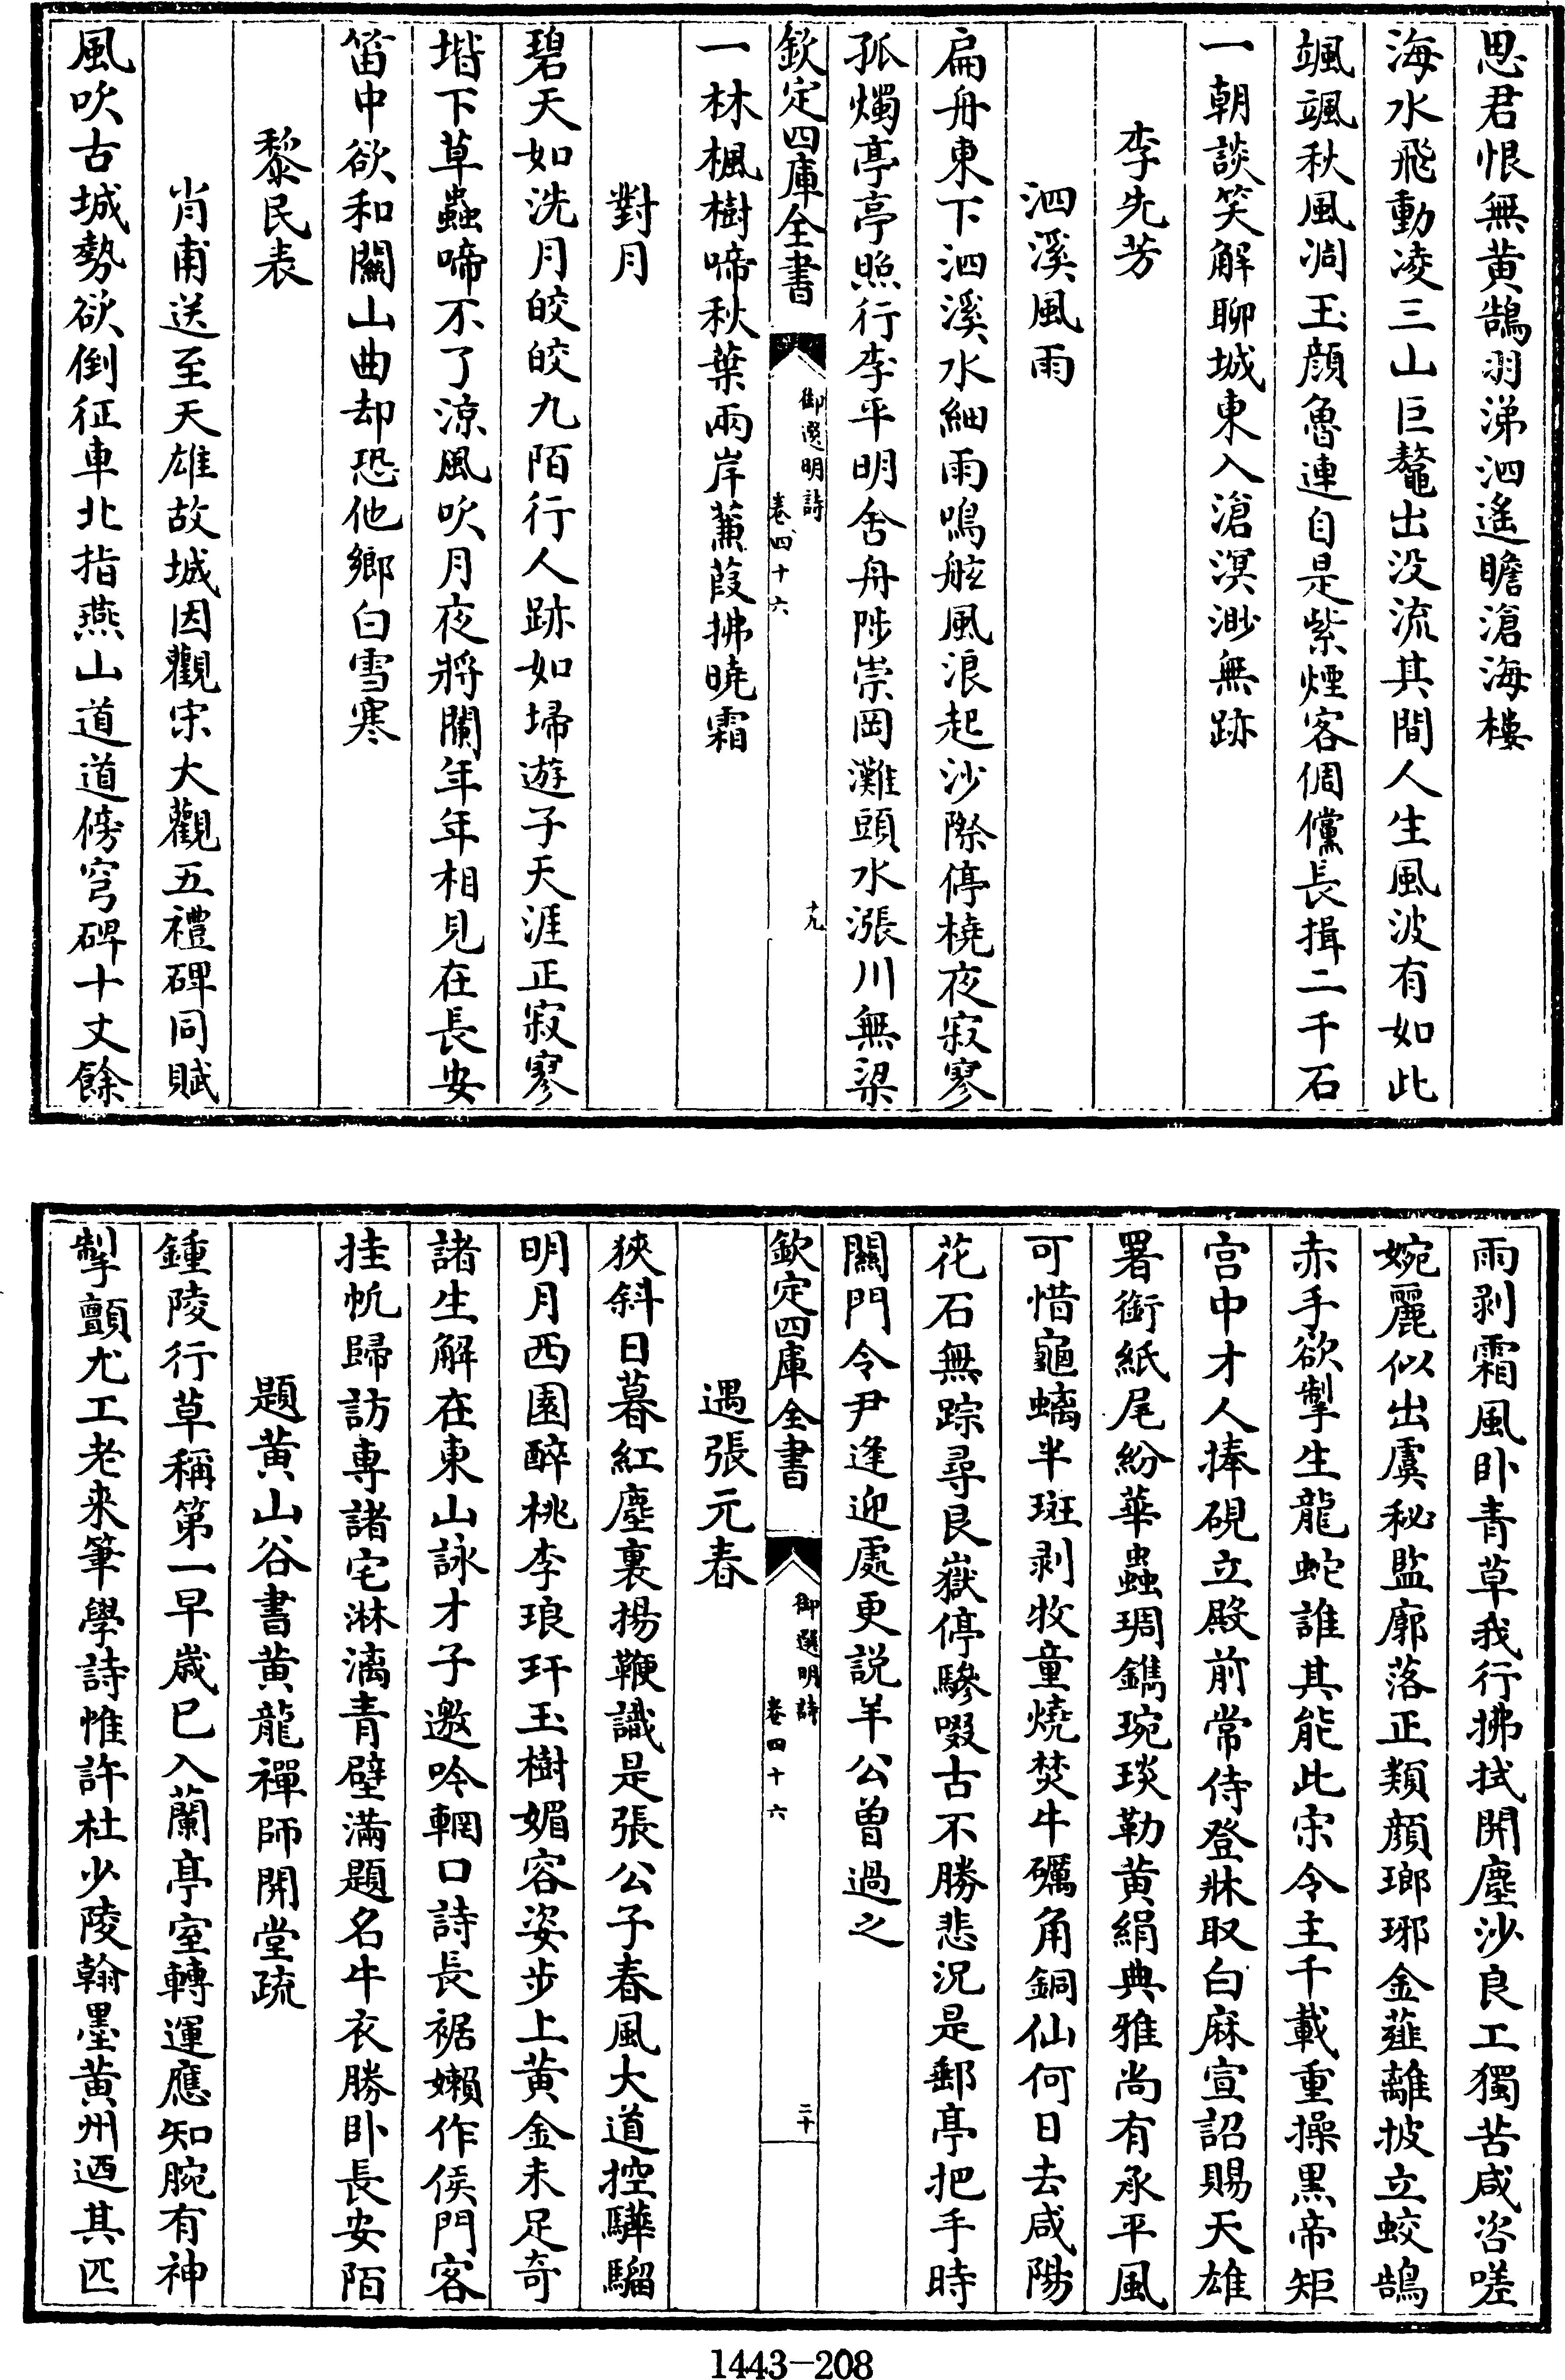 思君恨無黄鵠羽涕泗遙瞻滄海樓
海水飛動凌三山巨鼇出没流其間人生風波有如此
颯颯秋風凋玉顔魯連自是紫煙客倜儻長揖二千石
一朝談笑解聊城東入滄溟渺無跡
李先芳
泗溪風雨
扁舟東下泗溪水細雨鳴舷風浪起沙際停橈夜寂寥
孤燭亭亭照行李平明舍舟陟崇岡灘頭水漲川無梁
欽定四庫全書
御選明詩
卷四十六
十九
一林楓樹啼秋葉兩岸蒹葭拂曉霜
對月
碧天如洗月皎皎九陌行人跡如埽遊子天涯正寂寥
堦下草蟲啼不了涼風吹月夜將闌年年相見在長安
笛中欲和關山曲却恐他鄉白雪寒
黎民表
肖甫送至天雄故城因觀宋大觀五禮碑同賦
風吹古城勢欲倒征車北指燕山道道傍穹碑十丈餘
雨剥霜風卧青草我行拂拭開塵沙良工獨苦咸咨嗟
婉麗似出虞秘監廓落正類顔瑯琊金薤離披立蛟鵠
赤手欲掣生龍蛇誰其能此宋令主千載重操黒帝矩
宫中才人捧硯立殿前常侍登牀取白麻宣詔賜天雄
署銜紙尾紛華蟲琱鐫琬琰勒黄絹典雅尚有承平風
可惜龜螭半斑剥牧童燒焚牛礪角銅仙何日去咸陽
花石無踪尋艮嶽停驂啜古不勝悲况是郵亭把手時
關門令尹逢迎處更説羊公曽過之
欽定四庫全書
御選明詩
卷四十六
二十
遇張元春
狹斜日暮紅塵裏揚鞭識是張公子春風大道控驊騮
明月西園醉桃李琅玕玉樹媚容姿步上黄金未足奇
諸生解在東山詠才子邀吟輞口詩長裾嬾作侯門客
挂帆歸訪專諸宅淋漓青壁滿題名牛衣勝卧長安陌
題黄山谷書黄龍禪師開堂疏
鍾陵行草稱第一早歳已入蘭亭室轉運應知腕有神
掣顫尤工老來筆學詩惟許杜少陵翰墨黄州迺其匹
1443-208